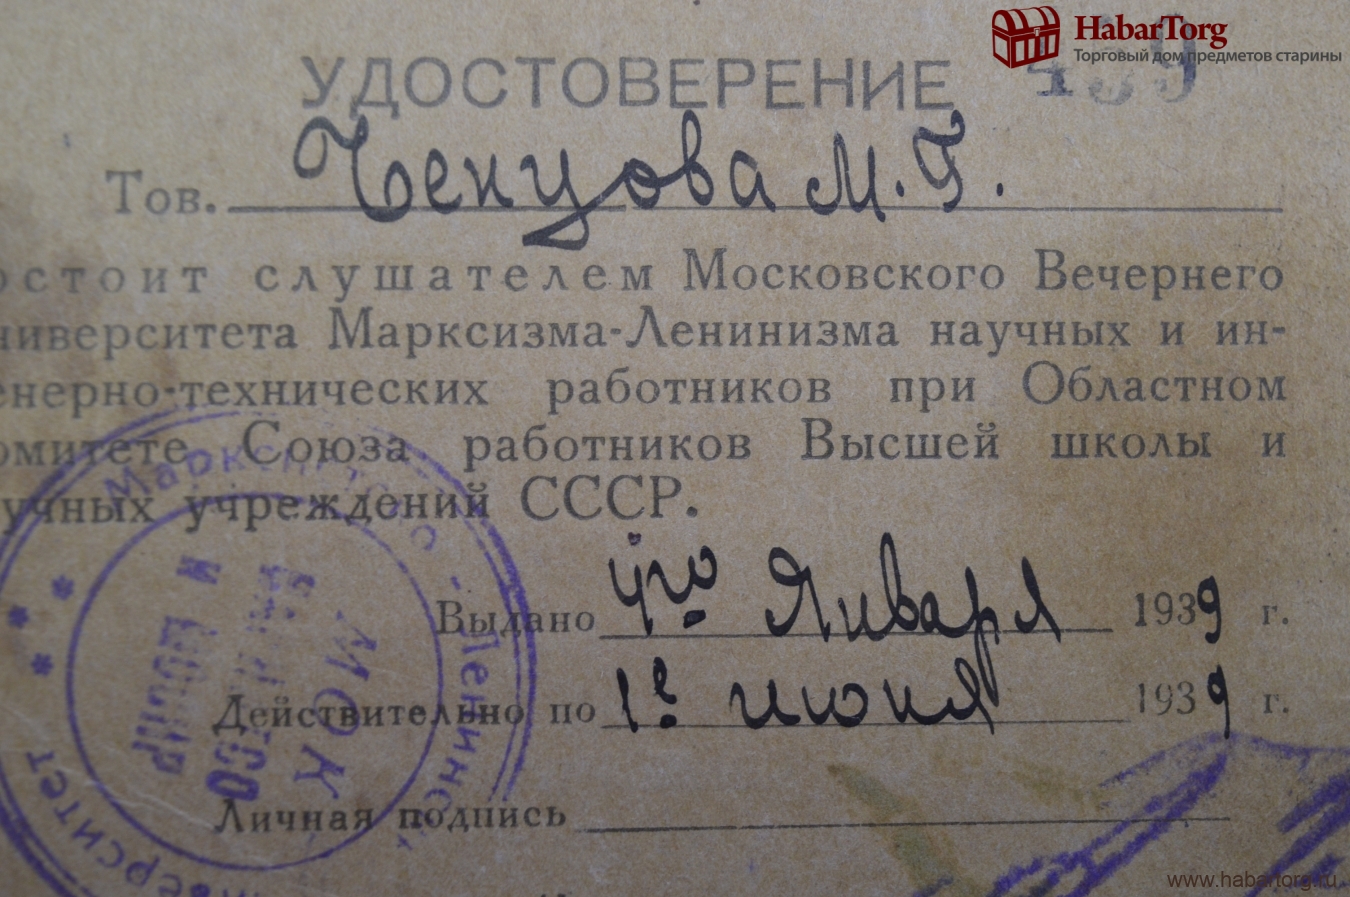 HabarTorg
Торговый дом предметов старины
УДОСТОВЕРЕНИЕ
Тов. Ченцова М. Г.
остоит слушателем Московского Вечернего
ниверситета Марксизма-Ленинизма научных и ин-
енерно-технических работников при Областном
омитете Союза работников Высшей школы и
учных учреждений СССР.
Выдано 4го Января 1939 г.
Действительно по 1е июня 1939 г.
Личная подпись
www.habartorg.ru